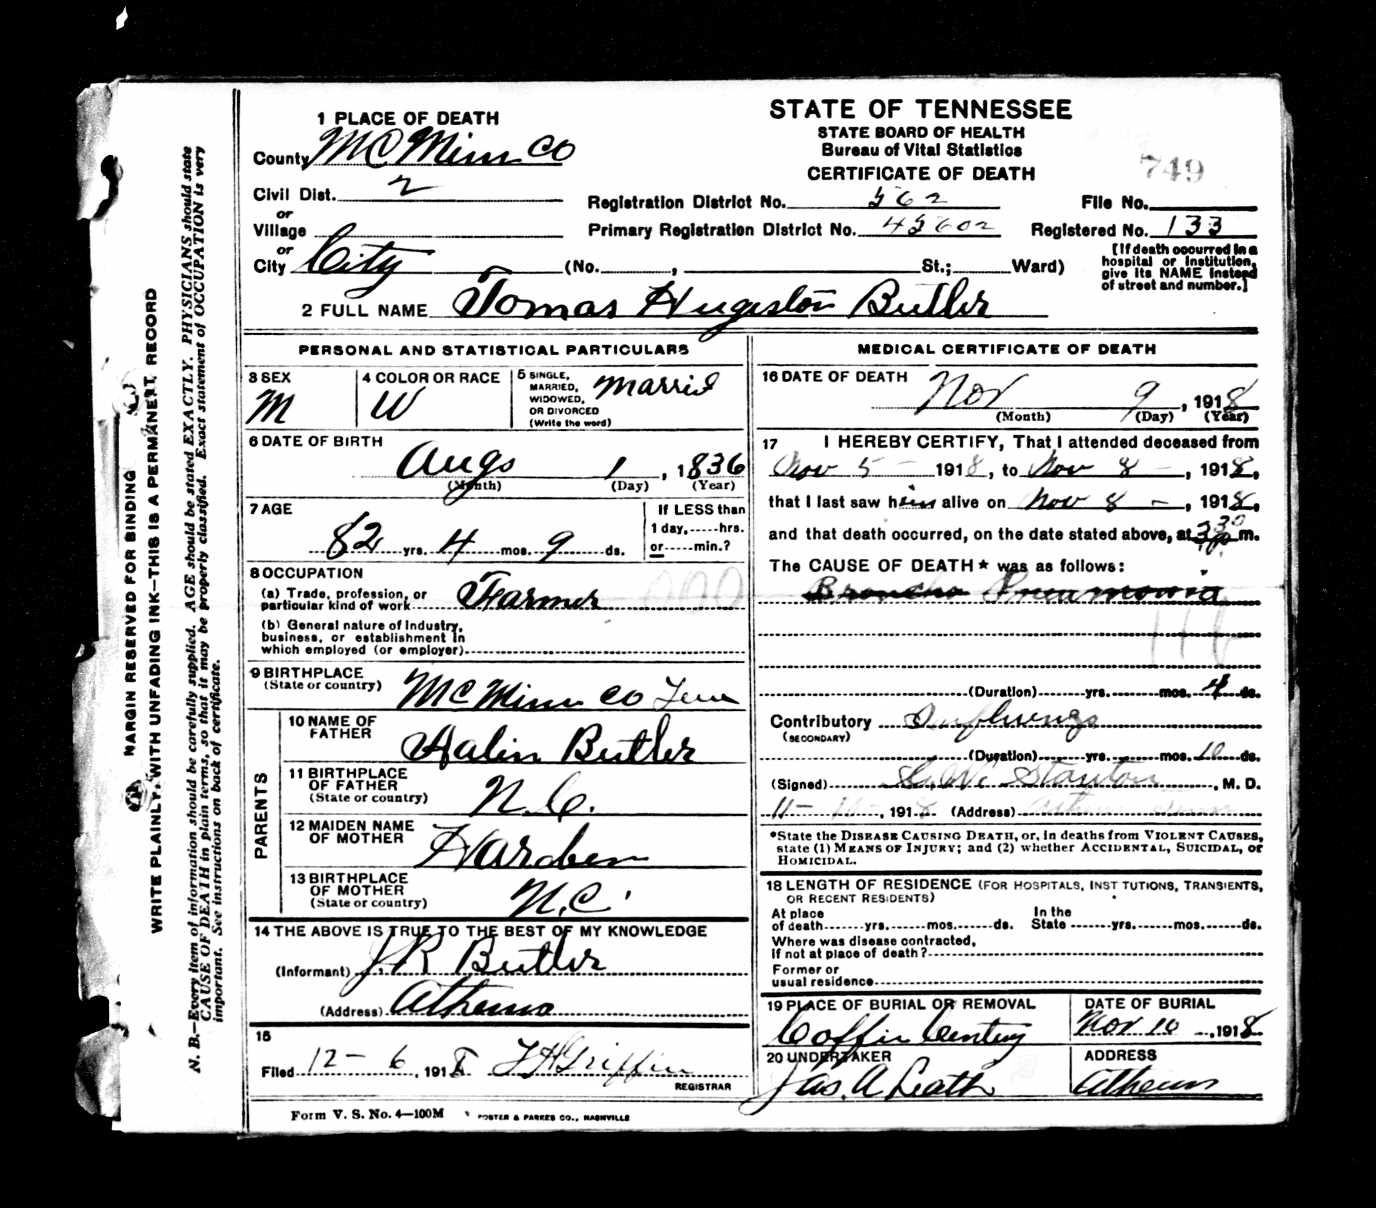 STATE OF TENNESSEE
STATE BOARD OF HEALTH
Bureau of Vital Statistics
CERTIFICATE OF DEATH
749
1 PLACE OF DEATH
County McMinn Co
Civil Dist. 2
or
Village
or
City City (No. , St.; Ward)
Registration District No. 562
File No.
Primary Registration District No. 45602
Registered No. 133
[If death occurred in a
hospital or institution,
give its NAME instead
of street and number.]
2 FULL NAME Tomas Hugiston Butler
PERSONAL AND STATISTICAL PARTICULARS
3 SEX
M
4 COLOR OR RACE
W
5 SINGLE,
MARRIED,
WIDOWED,
OR DIVORCED
(Write the word)
Married
6 DATE OF BIRTH
Augs 1, 1836
(Month) (Day) (Year)
7 AGE
82 yrs. 4 mos. 9 ds.
If LESS than
1 day, hrs.
or min.?
8 OCCUPATION
(a) Trade, profession, or
particular kind of work Farmer
(b) General nature of Industry,
business, or establishment in
which employed (or employer)
9 BIRTHPLACE
(State or country) McMinn Co Tenn
PARENTS
10 NAME OF
FATHER
Halin Butler
11 BIRTHPLACE
OF FATHER
(State or country)
N.C.
12 MAIDEN NAME
OF MOTHER
Harden
13 BIRTHPLACE
OF MOTHER
(State or country)
N.C.
14 THE ABOVE IS TRUE TO THE BEST OF MY KNOWLEDGE
(Informant) J.R Butler
(Address) Athens
15
Filed 12-6, 1918 Griffin
REGISTRAR
Form V. S. No. 4—100M FOSTER & PARKES CO., NASHVILLE
MEDICAL CERTIFICATE OF DEATH
16 DATE OF DEATH
Nov 9, 1918
(Month) (Day) (Year)
17 I HEREBY CERTIFY, That I attended deceased from
Nov 5 - 1918, to Nov 8 -, 1918,
that I last saw him alive on Nov 8 -, 1918,
and that death occurred, on the date stated above, at 3 30 p m.
The CAUSE OF DEATH* was as follows:
Broncho Pneumonia
(Duration) yrs. mos. 4 ds.
Contributory Influenza
(SECONDARY)
(Duration) yrs. mos. 10 ds.
(Signed) Stanton, M. D.
11- , 1918. (Address) Athens Tenn
*State the DISEASE CAUSING DEATH, or, in deaths from VIOLENT CAUSES,
state (1) MEANS OF INJURY; and (2) whether ACCIDENTAL, SUICIDAL, or
HOMICIDAL.
18 LENGTH OF RESIDENCE (FOR HOSPITALS, INSTITUTIONS, TRANSIENTS,
OR RECENT RESIDENTS)
At place
of death yrs. mos. ds.
In the
State yrs. mos. ds.
Where was disease contracted,
If not at place of death?
Former or
usual residence
19 PLACE OF BURIAL OR REMOVAL
Coffin
DATE OF BURIAL
Nov 10, 1918.
20 UNDERTAKER
Jas. A Leath
ADDRESS
Athens
MARGIN RESERVED FOR BINDING
WRITE PLAINLY, WITH UNFADING INK—THIS IS A PERMANENT RECORD
N. B.—Every item of information should be carefully supplied. AGE should be stated EXACTLY. PHYSICIANS should state
CAUSE OF DEATH in plain terms, so that it may be properly classified. Exact statement of OCCUPATION is very
important. See instructions on back of certificate.